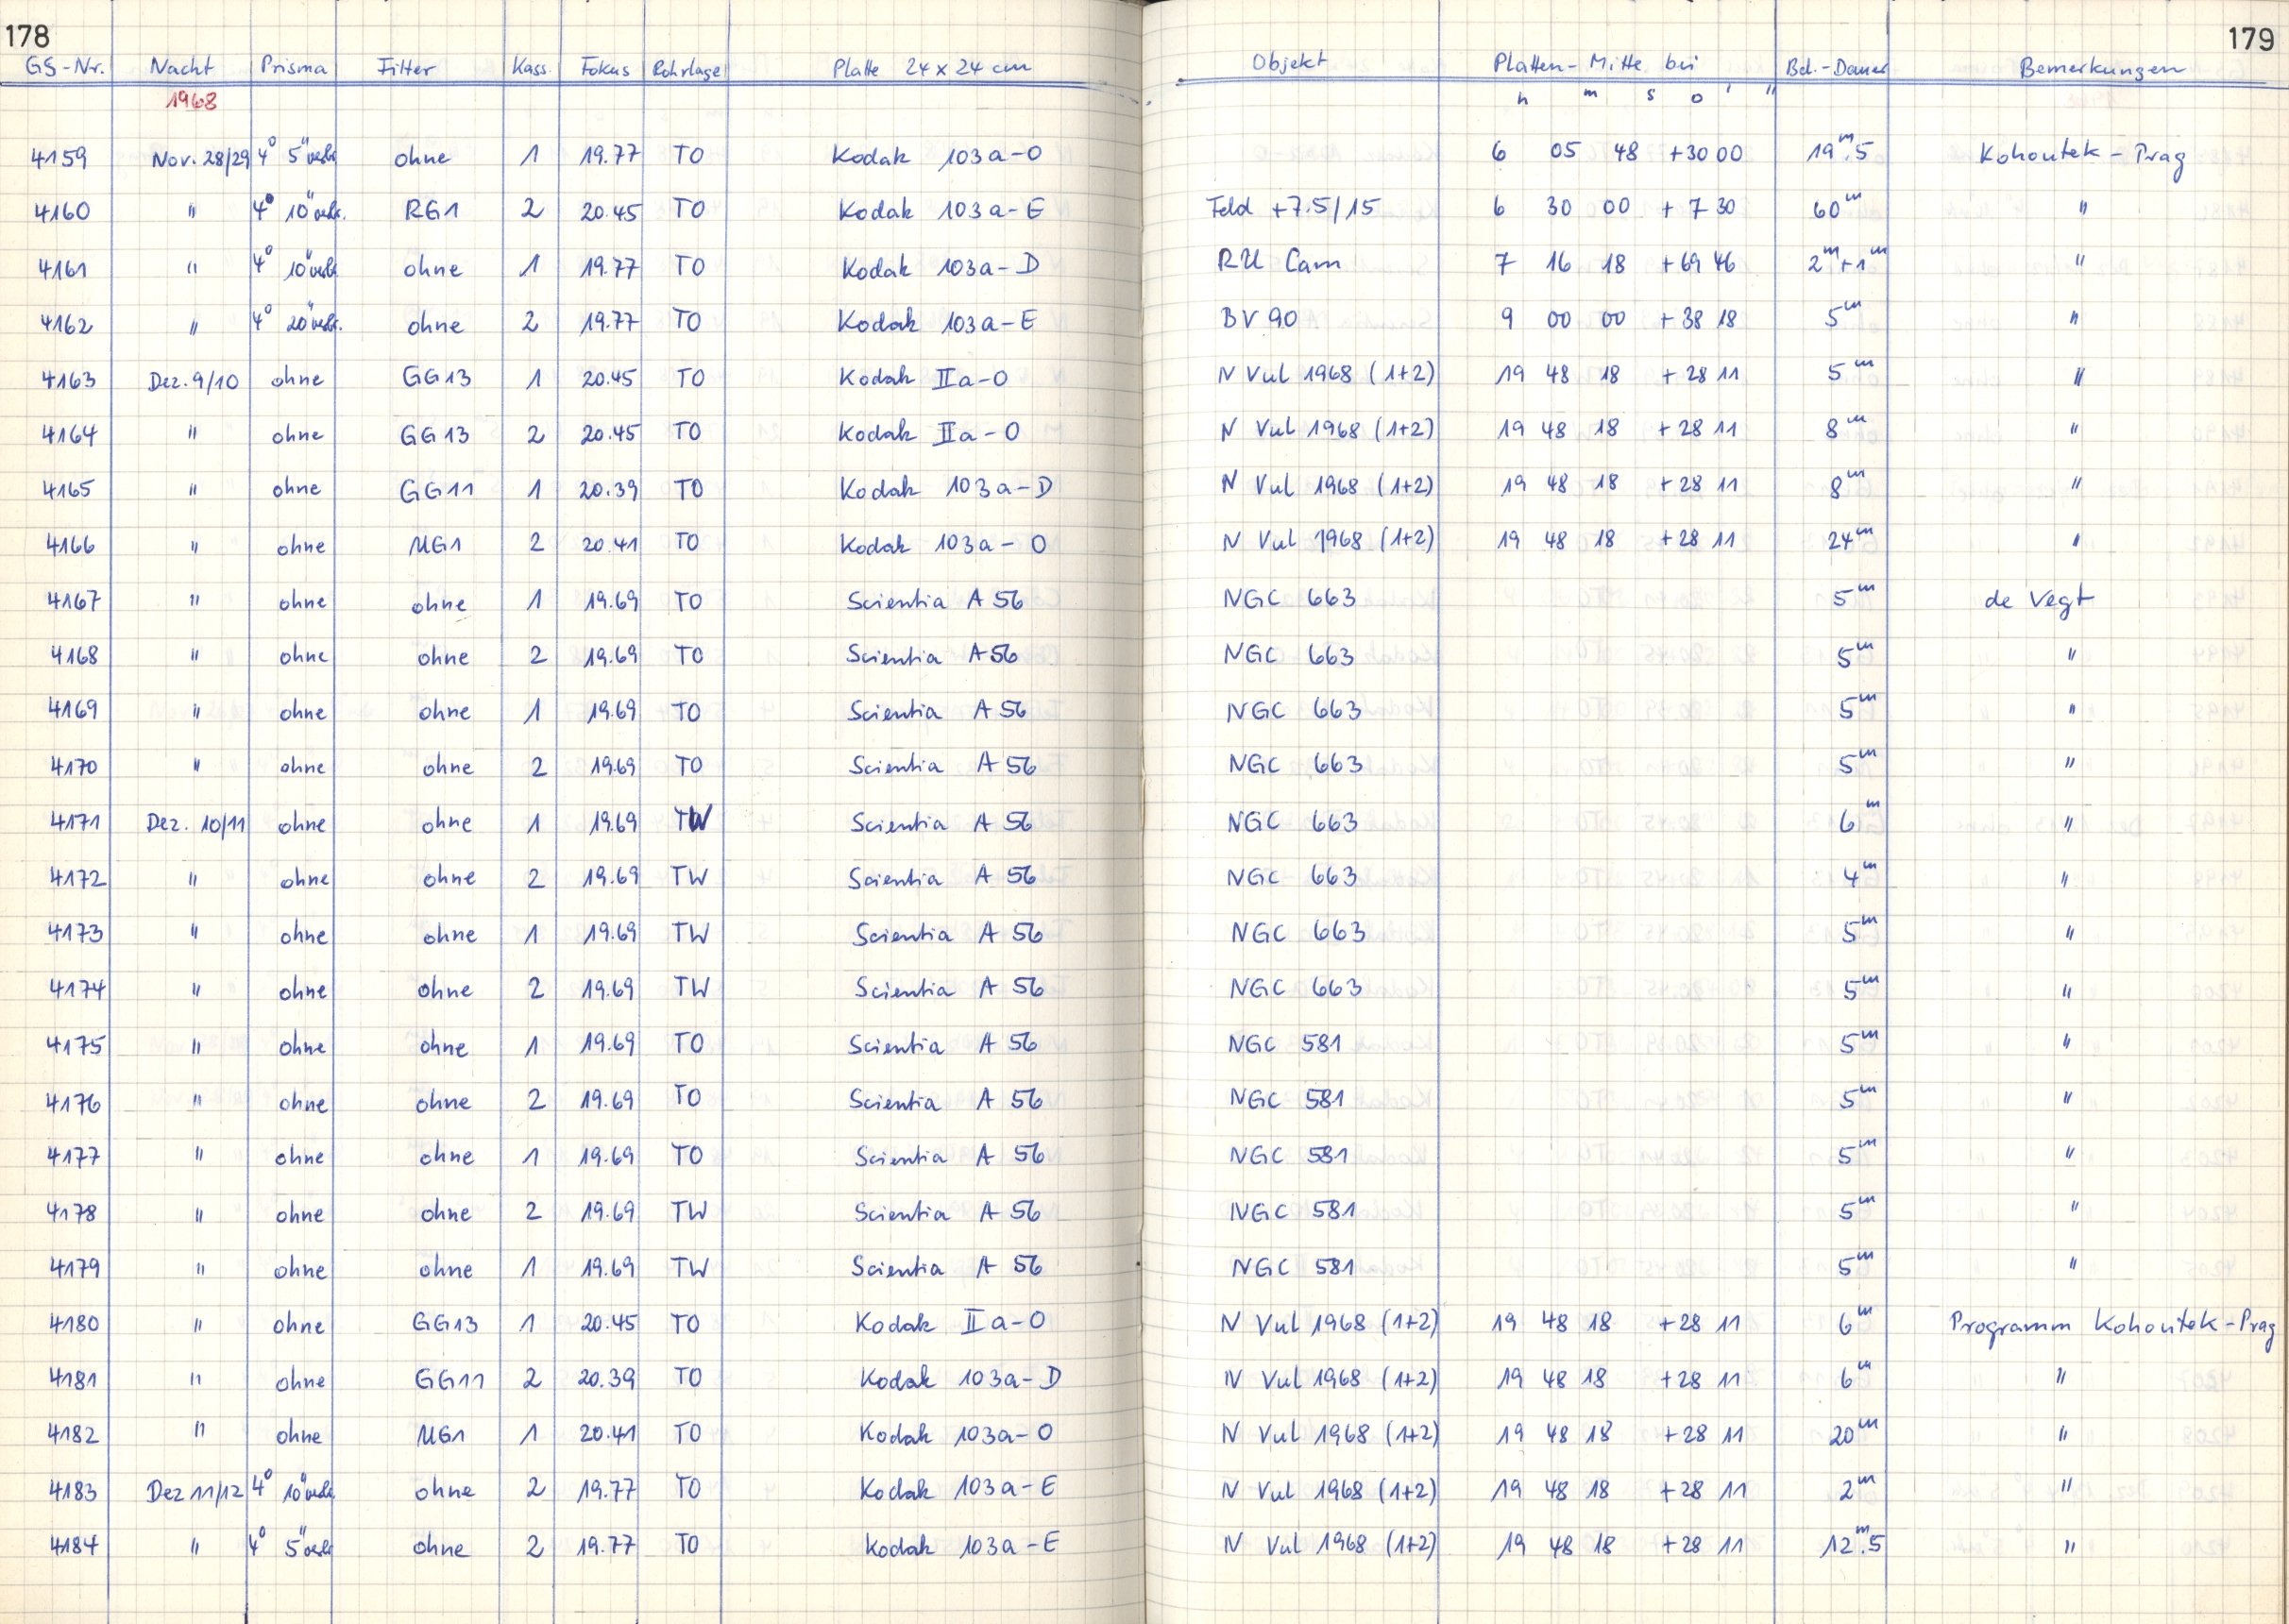 178
179
GS-Nr. Nacht Prisma Filter Kass. Fokus Rohrlage Platte 24 x 24 cm Objekt Platten-Mitte bei Bel.-Dauer Bemerkungen
1968 h m s o ' "
4159 Nov. 28/29 4° 5" verbr. ohne 1 19.77 TO Kodak 103a-O 6 05 48 +30 00 19m.5 Kohoutek - Prag
4160 " 4° 10" verbr. RG1 2 20.45 TO Kodak 103a-E Feld +7.5/15 6 30 00 +7 30 60m "
4161 " 4° 10" verbr. ohne 1 19.77 TO Kodak 103a-D RU Cam 7 16 18 +69 46 2m+1m "
4162 " 4° 20" verbr. ohne 2 19.77 TO Kodak 103a-E BV 90 9 00 00 +38 18 5m "
4163 Dez. 9/10 ohne GG13 1 20.45 TO Kodak IIa-O N Vul 1968 (1+2) 19 48 18 +28 11 5m "
4164 " ohne GG13 2 20.45 TO Kodak IIa-O N Vul 1968 (1+2) 19 48 18 +28 11 8m "
4165 " ohne GG11 1 20.39 TO Kodak 103a-D N Vul 1968 (1+2) 19 48 18 +28 11 8m "
4166 " ohne UG1 2 20.41 TO Kodak 103a-O N Vul 1968 (1+2) 19 48 18 +28 11 24m "
4167 " ohne ohne 1 19.69 TO Scientia A 56 NGC 663 5m de Vegt
4168 " ohne ohne 2 19.69 TO Scientia A 56 NGC 663 5m "
4169 " ohne ohne 1 19.69 TO Scientia A 56 NGC 663 5m "
4170 " ohne ohne 2 19.69 TO Scientia A 56 NGC 663 5m "
4171 Dez. 10/11 ohne ohne 1 19.69 TW Scientia A 56 NGC 663 6m "
4172 " ohne ohne 2 19.69 TW Scientia A 56 NGC 663 4m "
4173 " ohne ohne 1 19.69 TW Scientia A 56 NGC 663 5m "
4174 " ohne ohne 2 19.69 TW Scientia A 56 NGC 663 5m "
4175 " ohne ohne 1 19.69 TO Scientia A 56 NGC 581 5m "
4176 " ohne ohne 2 19.69 TO Scientia A 56 NGC 581 5m "
4177 " ohne ohne 1 19.69 TO Scientia A 56 NGC 581 5m "
4178 " ohne ohne 2 19.69 TW Scientia A 56 NGC 581 5m "
4179 " ohne ohne 1 19.69 TW Scientia A 56 NGC 581 5m "
4180 " ohne GG13 1 20.45 TO Kodak IIa-O N Vul 1968 (1+2) 19 48 18 +28 11 6m Programm Kohoutek-Prag
4181 " ohne GG11 2 20.39 TO Kodak 103a-D N Vul 1968 (1+2) 19 48 18 +28 11 6m "
4182 " ohne UG1 1 20.41 TO Kodak 103a-O N Vul 1968 (1+2) 19 48 18 +28 11 20m "
4183 Dez 11/12 4° 10" verbr. ohne 2 19.77 TO Kodak 103a-E N Vul 1968 (1+2) 19 48 18 +28 11 2m "
4184 " 4° 5" verbr. ohne 2 19.77 TO Kodak 103a-E N Vul 1968 (1+2) 19 48 18 +28 11 12m.5 "